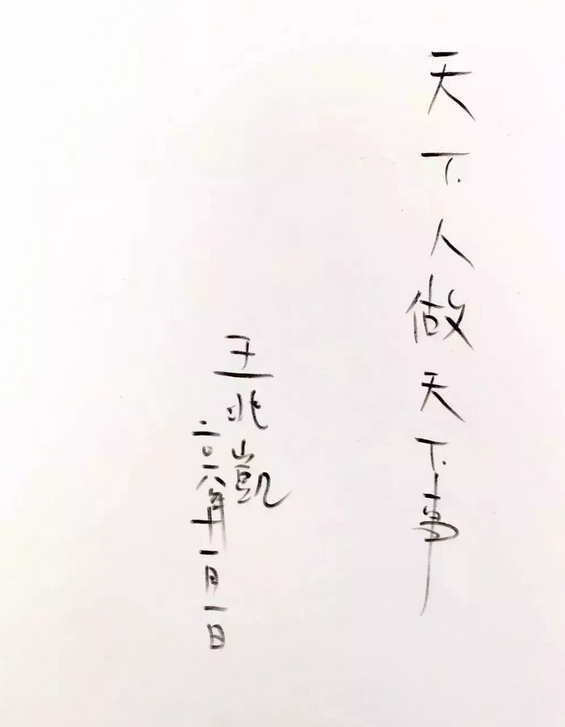 天下人做天下事
王兆凱
二〇一八年十一月一日